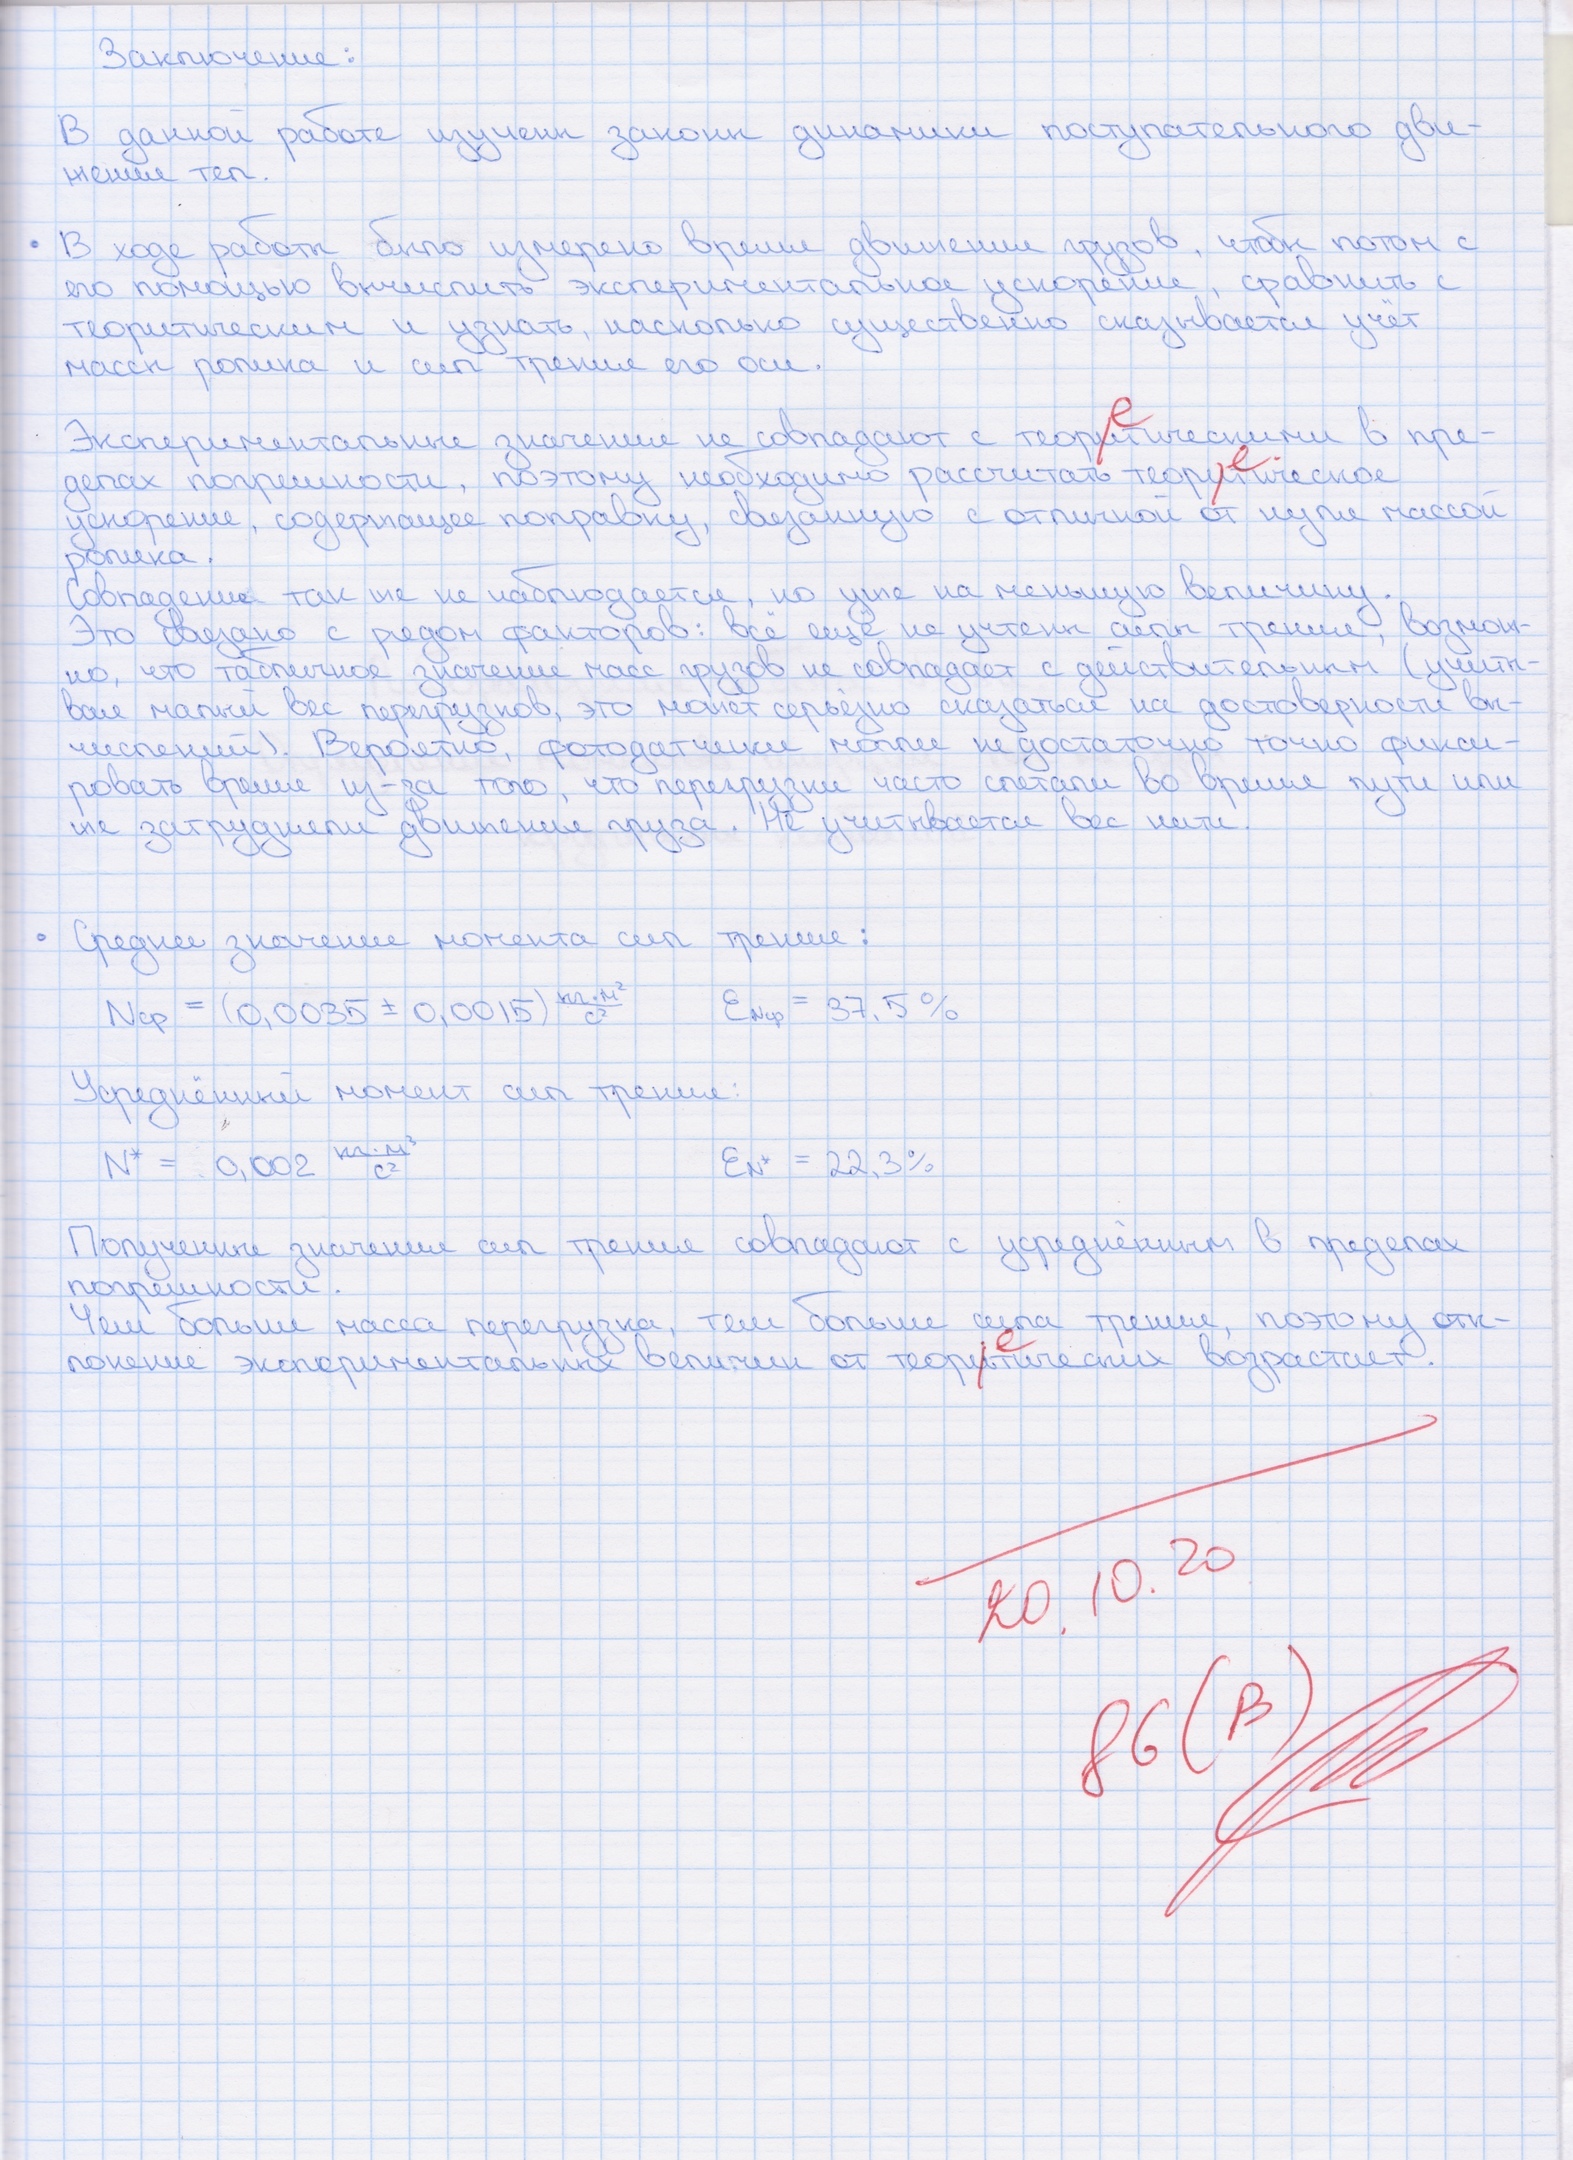 Заключение:
В данной работе изучены законы динамики поступательного дви-
жения тел.
• В ходе работы было измерено время движения грузов, чтобы потом с
его помощью вычислить экспериментальное ускорение, сравнить с
теоритическим и узнать, насколько существенно сказывается учёт
массы ролика и сил трения его оси.
Экспериментальные значения не совпадают с теоритическими в пре-
е
делах погрешности, поэтому необходимо рассчитать теоритическое
е
ускорение, содержащее поправку, связанную с отличной от нуля массой
ролика.
Совпадение так же не наблюдается, но уже на меньшую величину.
Это связано с рядом факторов: всё ещё не учтены силы трения, возмож-
но, что табличное значение масс грузов не совпадает с действительным (учиты-
вая малый вес перегрузков, это может серьёзно сказаться на достоверности вы-
числений). Вероятно, фотодатчики могли недостаточно точно фикси-
ровать время из-за того, что перегрузки часто слетали во время пути или
же затрудняли движения груза. Не учитывается вес нити.
• Среднее значение момента сил трения:
Nср = (0,0035 ± 0,0015) кг·м²/с² εNср = 37,5%
Усреднённый момент сил трения:
N* = 0,002 кг·м³/с² εN* = 22,3%
Полученные значения сил трения совпадают с усреднённым в пределах
погрешности.
Чем больше масса перегрузка, тем больше сила трения, поэтому отк-
лонение экспериментальных величин от теоритических возрастает.
е
20.10.20
86(B)